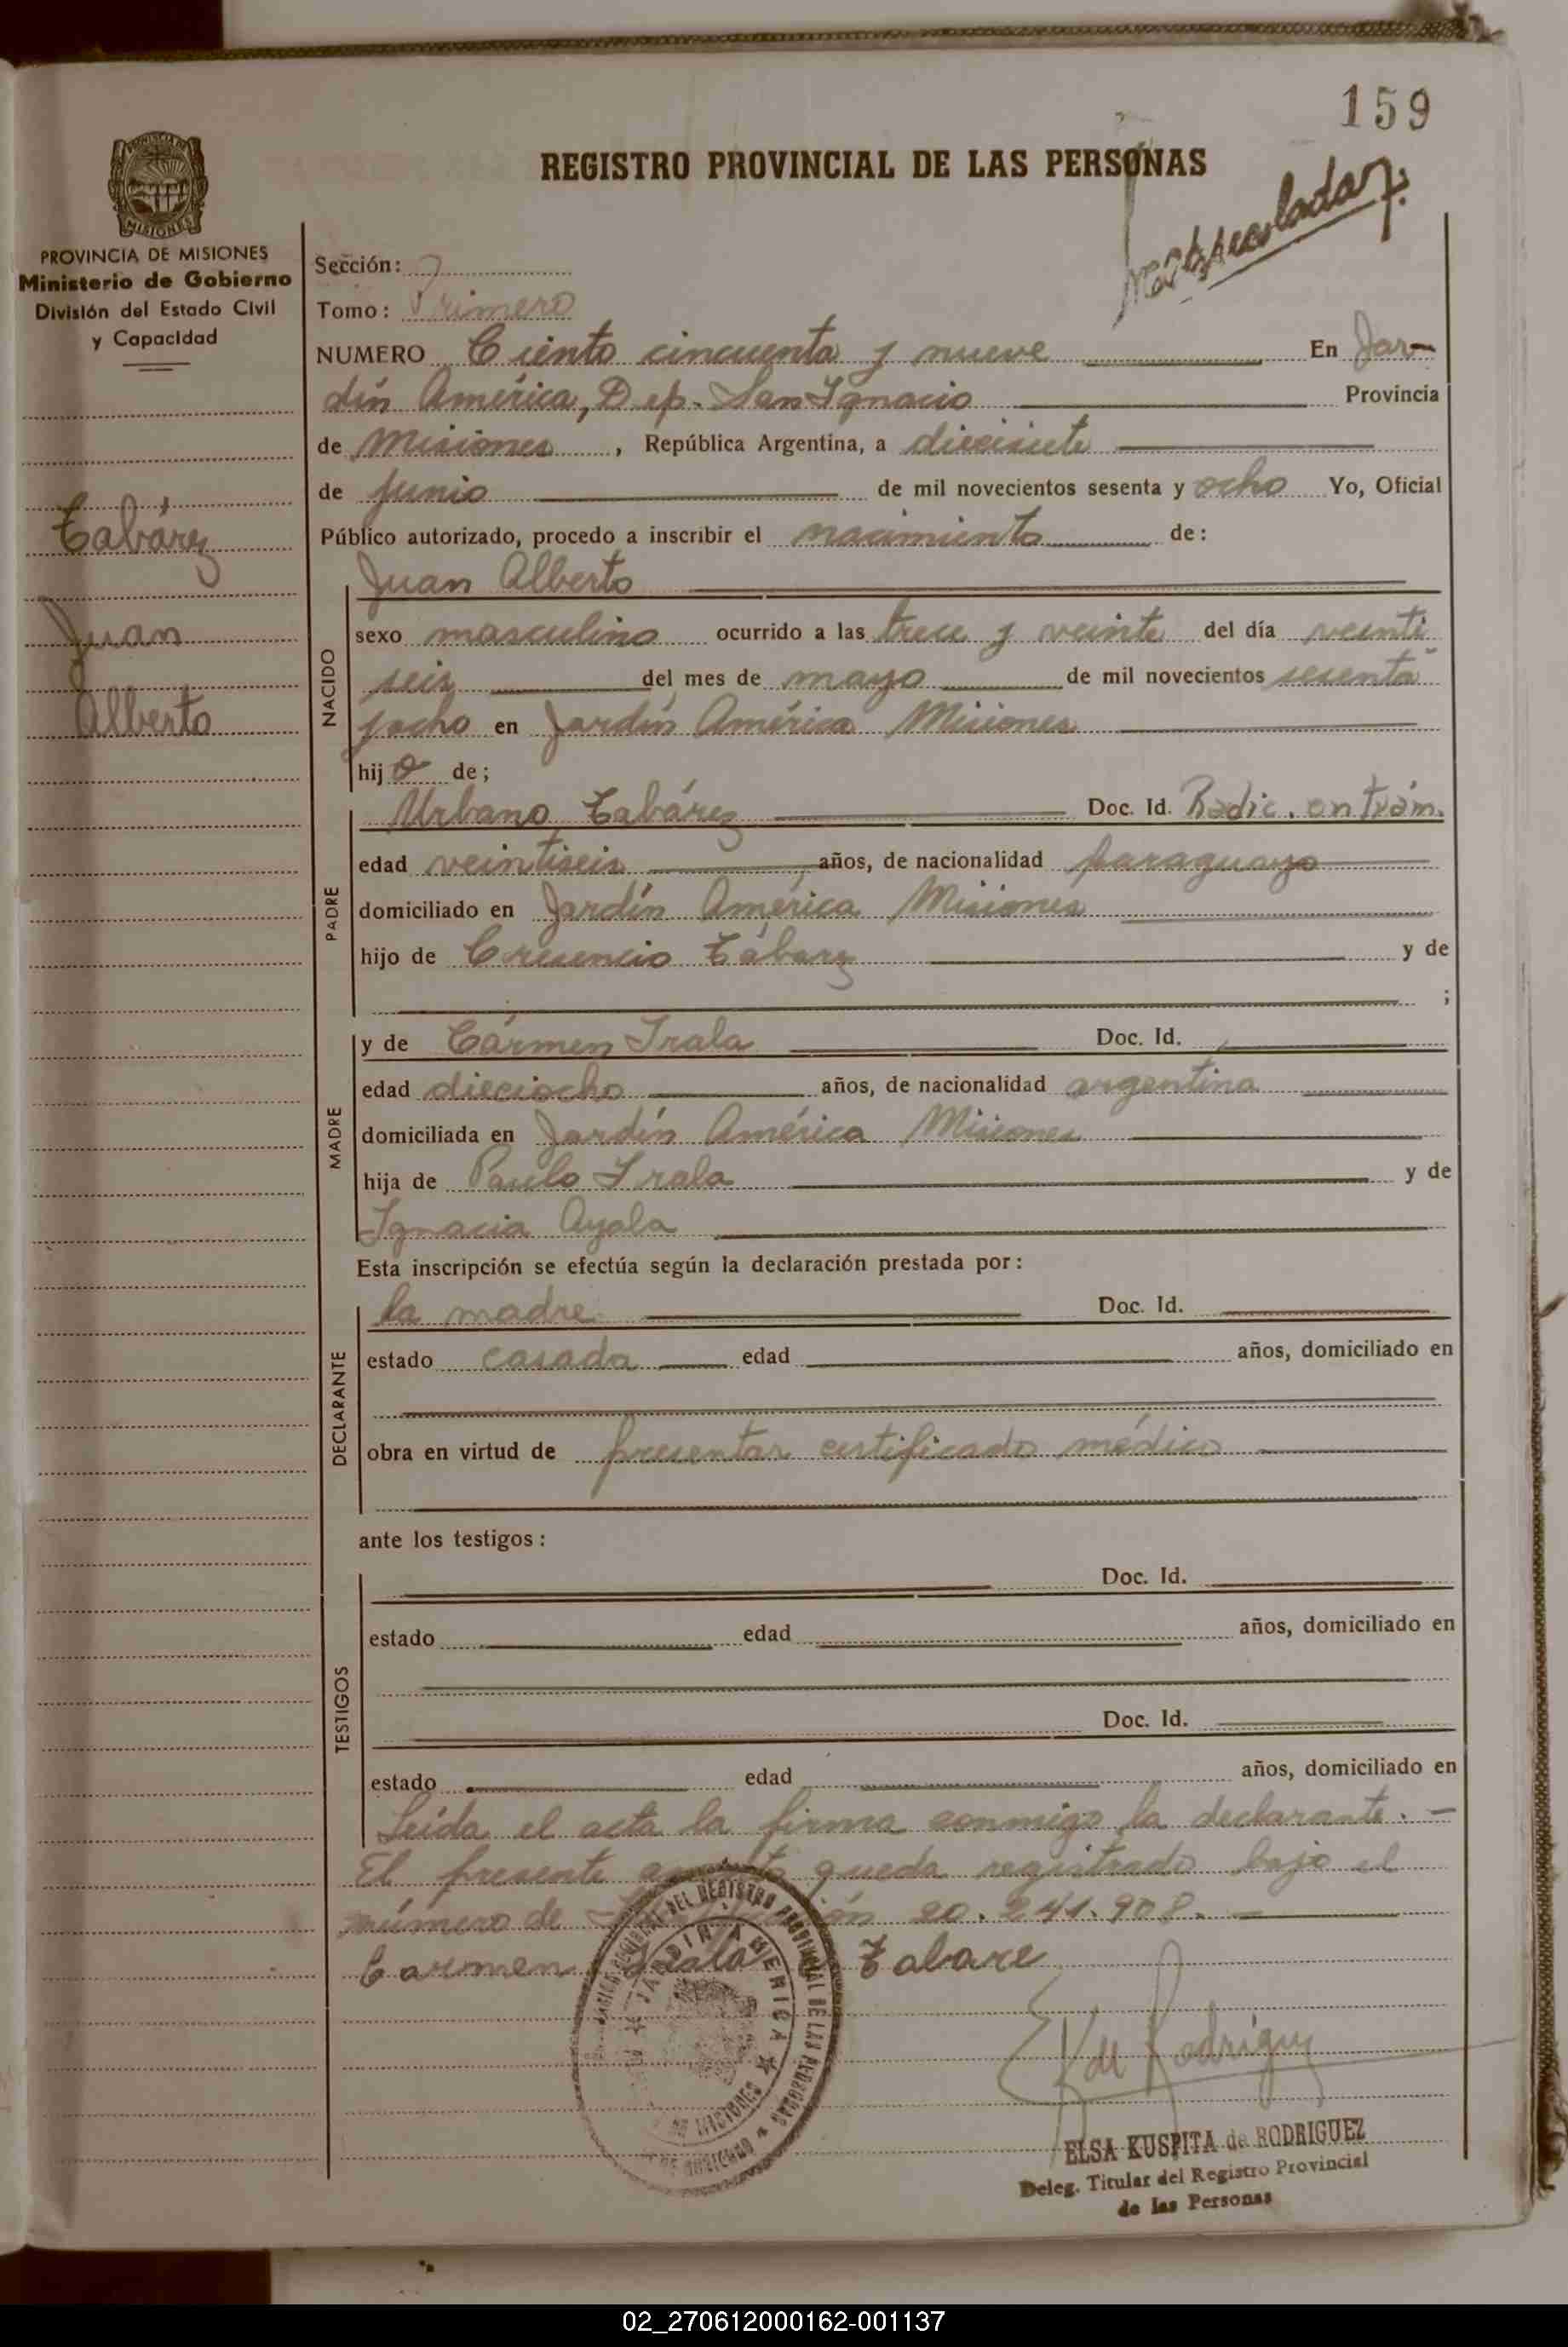 159
REGISTRO PROVINCIAL DE LAS PERSONAS
PROVINCIA DE MISIONES
Ministerio de Gobierno
División del Estado Civil
y Capacidad
Tabárez
Juan
Alberto
Sección:
Tomo: Primero
NUMERO Ciento cincuenta y nueve En Jar-
dín América, Dep. San Ignacio Provincia
de Misiones, República Argentina, a diecisiete
de junio de mil novecientos sesenta y ocho Yo, Oficial
Público autorizado, procedo a inscribir el nacimiento de:
Juan Alberto
NACIDO
sexo masculino ocurrido a las trece y veinte del día veinti
seis del mes de mayo de mil novecientos sesenta
y ocho en Jardín América Misiones
hijo de;
PADRE
Urbano Tabárez Doc. Id. Radic. en trám.
edad veintiseis años, de nacionalidad paraguayo
domiciliado en Jardín América Misiones
hijo de Cresencio Tábarez y de
;
MADRE
y de Cármen Irala Doc. Id.
edad dieciocho años, de nacionalidad argentina
domiciliada en Jardín América Misiones
hija de Paulo Irala y de
Ignacia Ayala
Esta inscripción se efectúa según la declaración prestada por:
DECLARANTE
la madre Doc. Id.
estado casada edad años, domiciliado en
obra en virtud de presentar certificado médico
ante los testigos:
TESTIGOS
Doc. Id.
estado edad años, domiciliado en
Doc. Id.
estado edad años, domiciliado en
Leída el acta la firma conmigo la declarante.-
El presente queda registrado bajo el
número de 20.241.908.-
Carmen Irala Tabare
JARDIN AMERICA
DEL REGISTRO PROVINCIAL DE LAS PERSONAS
E K de Rodriguez
ELSA KUSPITA de RODRIGUEZ
Deleg. Titular del Registro Provincial
de las Personas
02_270612000162-001137